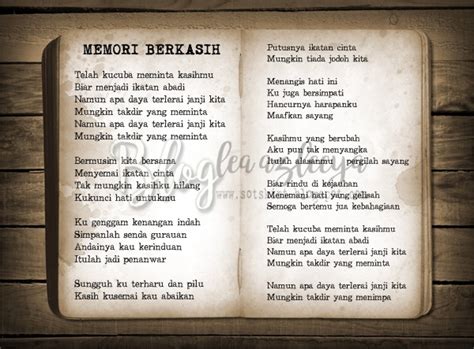 MEMORI BERKASIH
Telah kucuba meminta kasihmu
Biar menjadi ikatan abadi
Namun apa daya terlerai janji kita
Namun apa daya terlerai janji kita
Mungkin takdir yang meminta
Bermusim kita bersama
Menyemai ikatan cinta
Tak mungkin kasihku hilang
Kukunci hati untukmu
Ku genggam kenangan indah
Simpanlah senda gurauan
Andainya kau kerinduan
Itulah jadi penawar
Sungguh ku terharu dan pilu
Kasih kusemai kau abaikan
Putusnya ikatan cinta
Mungkin tiada jodoh kita
Menangis hati ini
Ku juga bersimpati
Hancurnya harapanku
Maafkan sayang
Kasihmu yang berubah
Aku pun tak menyangka
Itulah alasanmu pergilah sayang
Biar rindu di kejauhan
Menemani hati yang gelisah
Semoga bertemu jua kebahagiaan
Telah kucuba meminta kasihmu
Biar menjadi ikatan abadi
Namun apa daya terlerai janji kita
Mungkin takdir yang meminta
Namun apa daya terlerai janji kita
Mungkin takdir yang menimpa